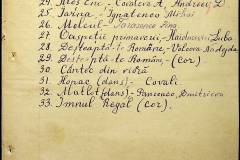 24. Kres Enc - Covaleva A, Andreev D.
25. Țarina - Ignatenco Mihai
26. Melcul - Parasenco Ana.
27. Oaspeții primăverii - Haiducu Liuba
28. Deșteaptă-te Române - Valcova Nadejda
29. Deșteptă-te Român - (Cor)
30. Cântec din vioră
31. Hopac (dans) - Covali
32. Matlot (dans) - Panzenco, Dmitrieva
33. Imnul Regal (Cor).